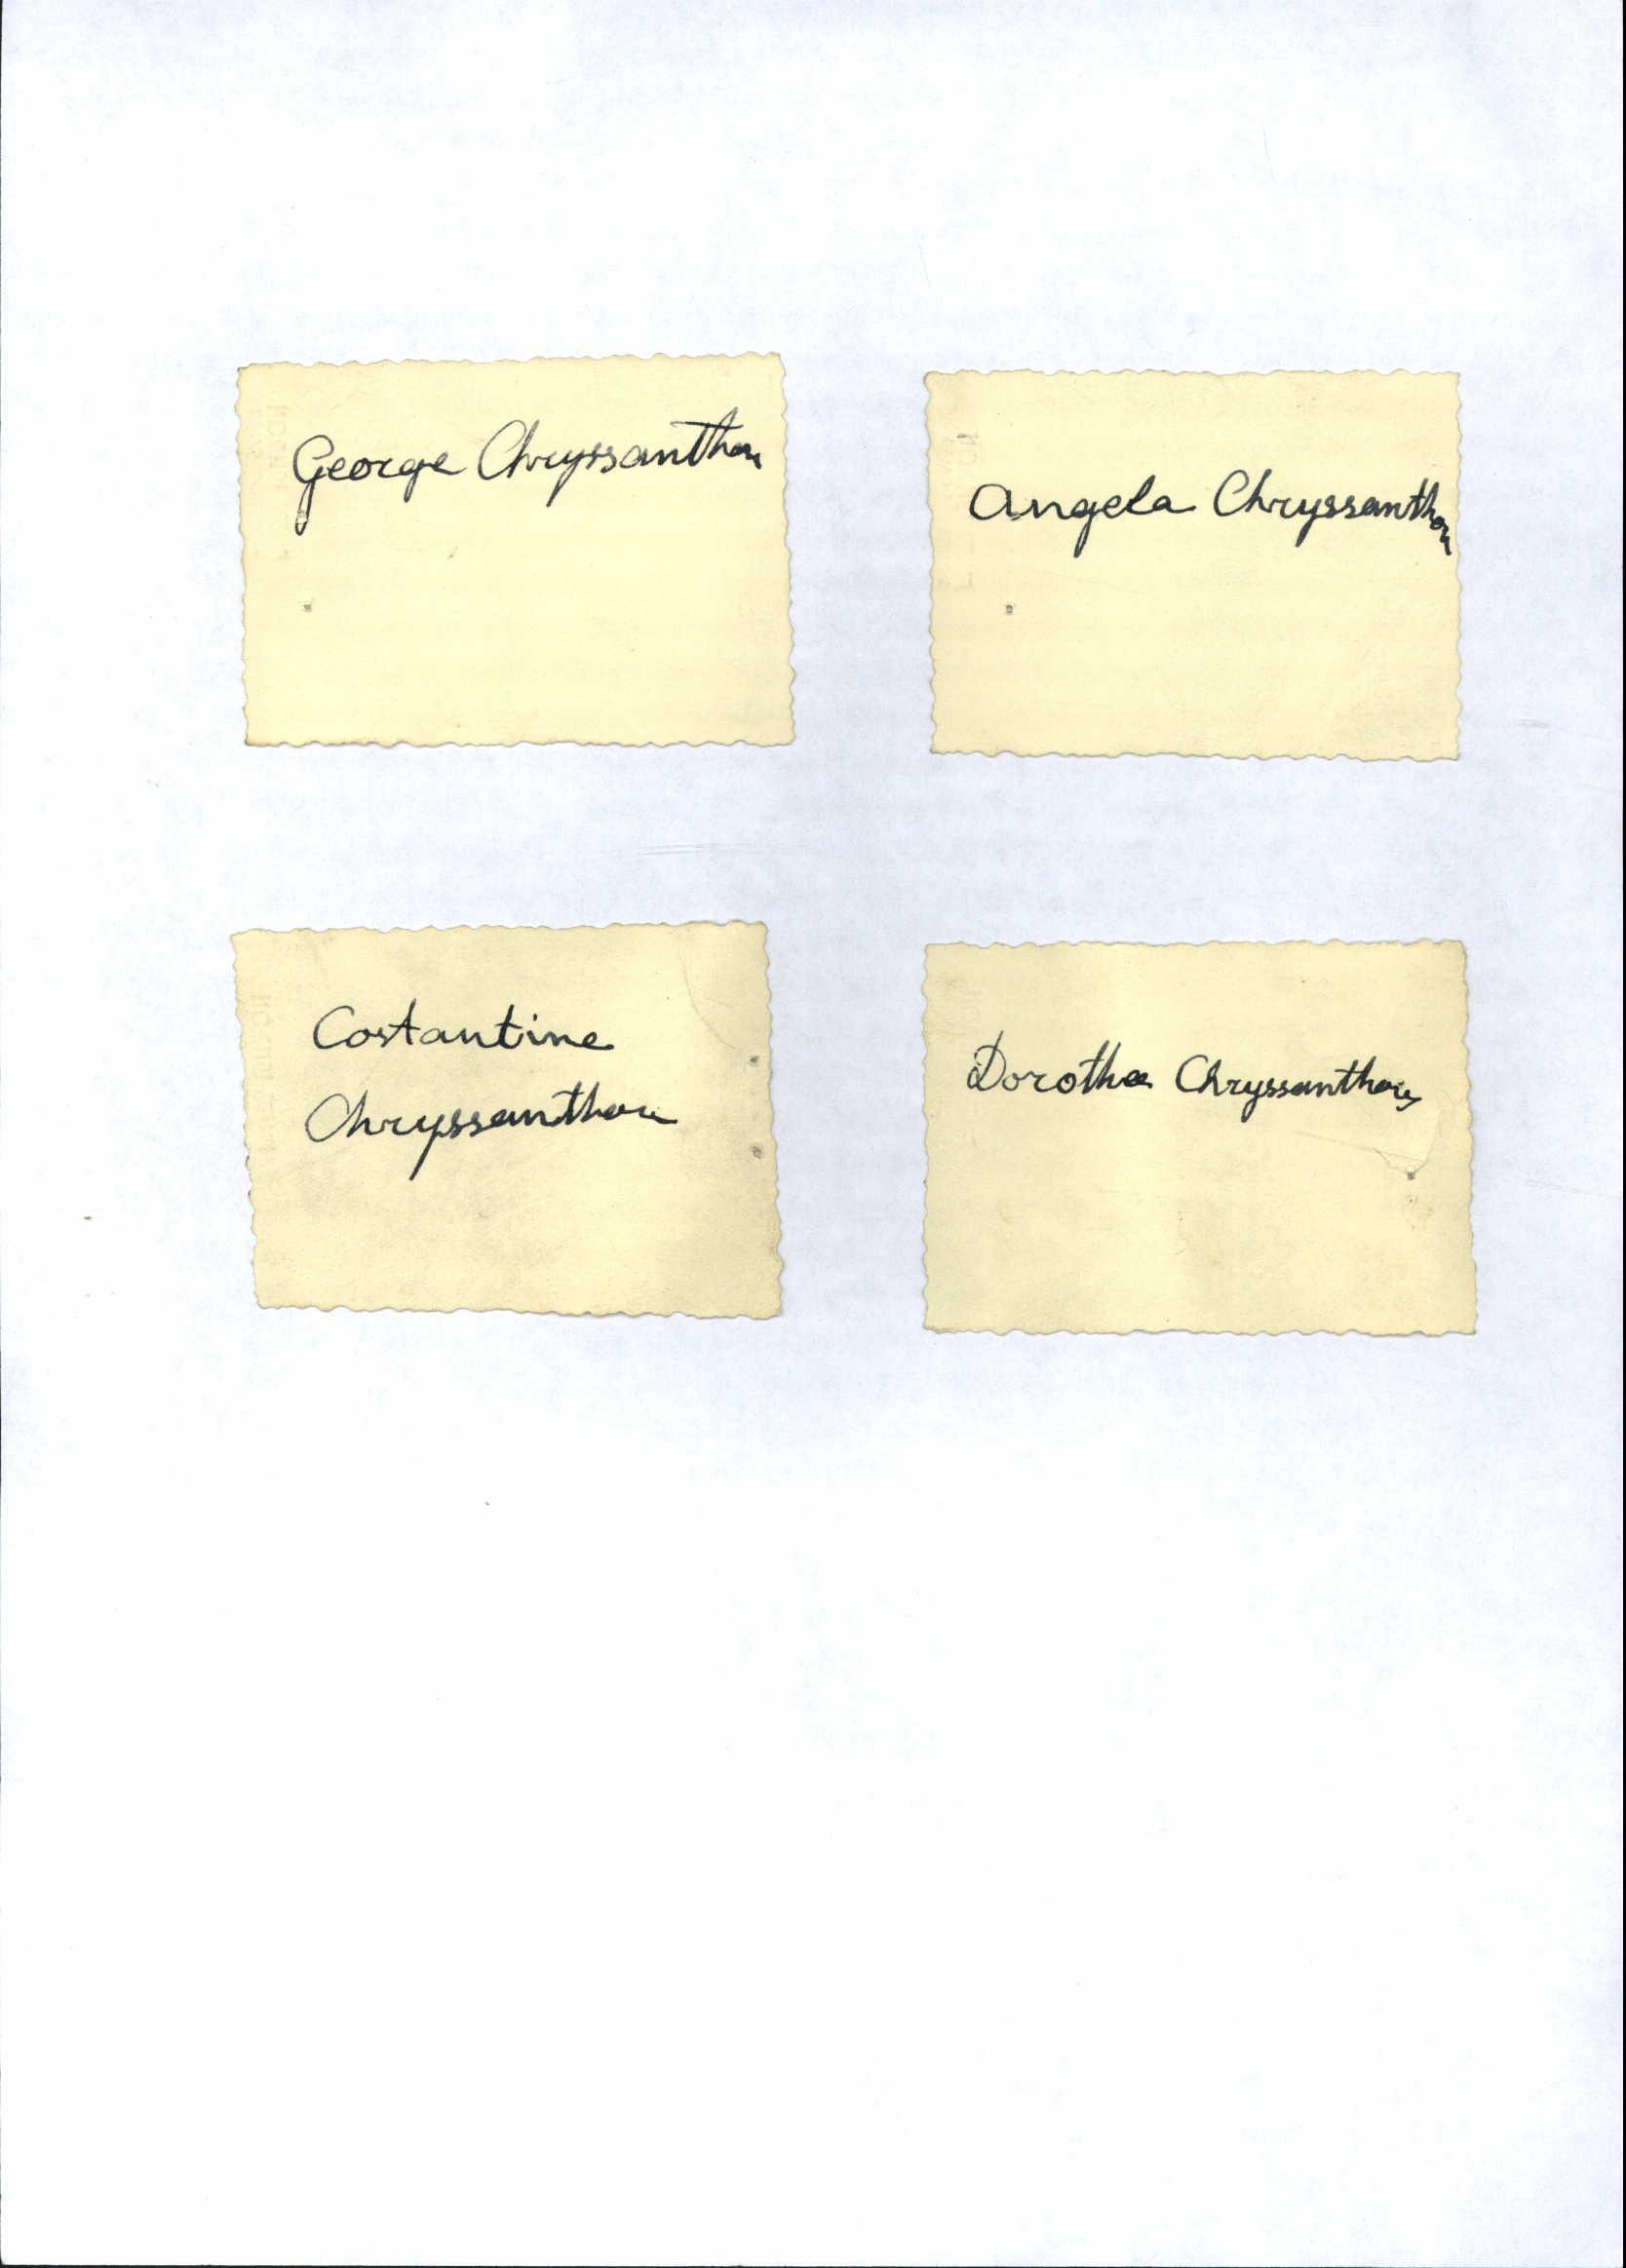 George Chryssanthou
Angela Chryssanthou
Costantine
Chryssanthou
Dorothea Chryssanthou